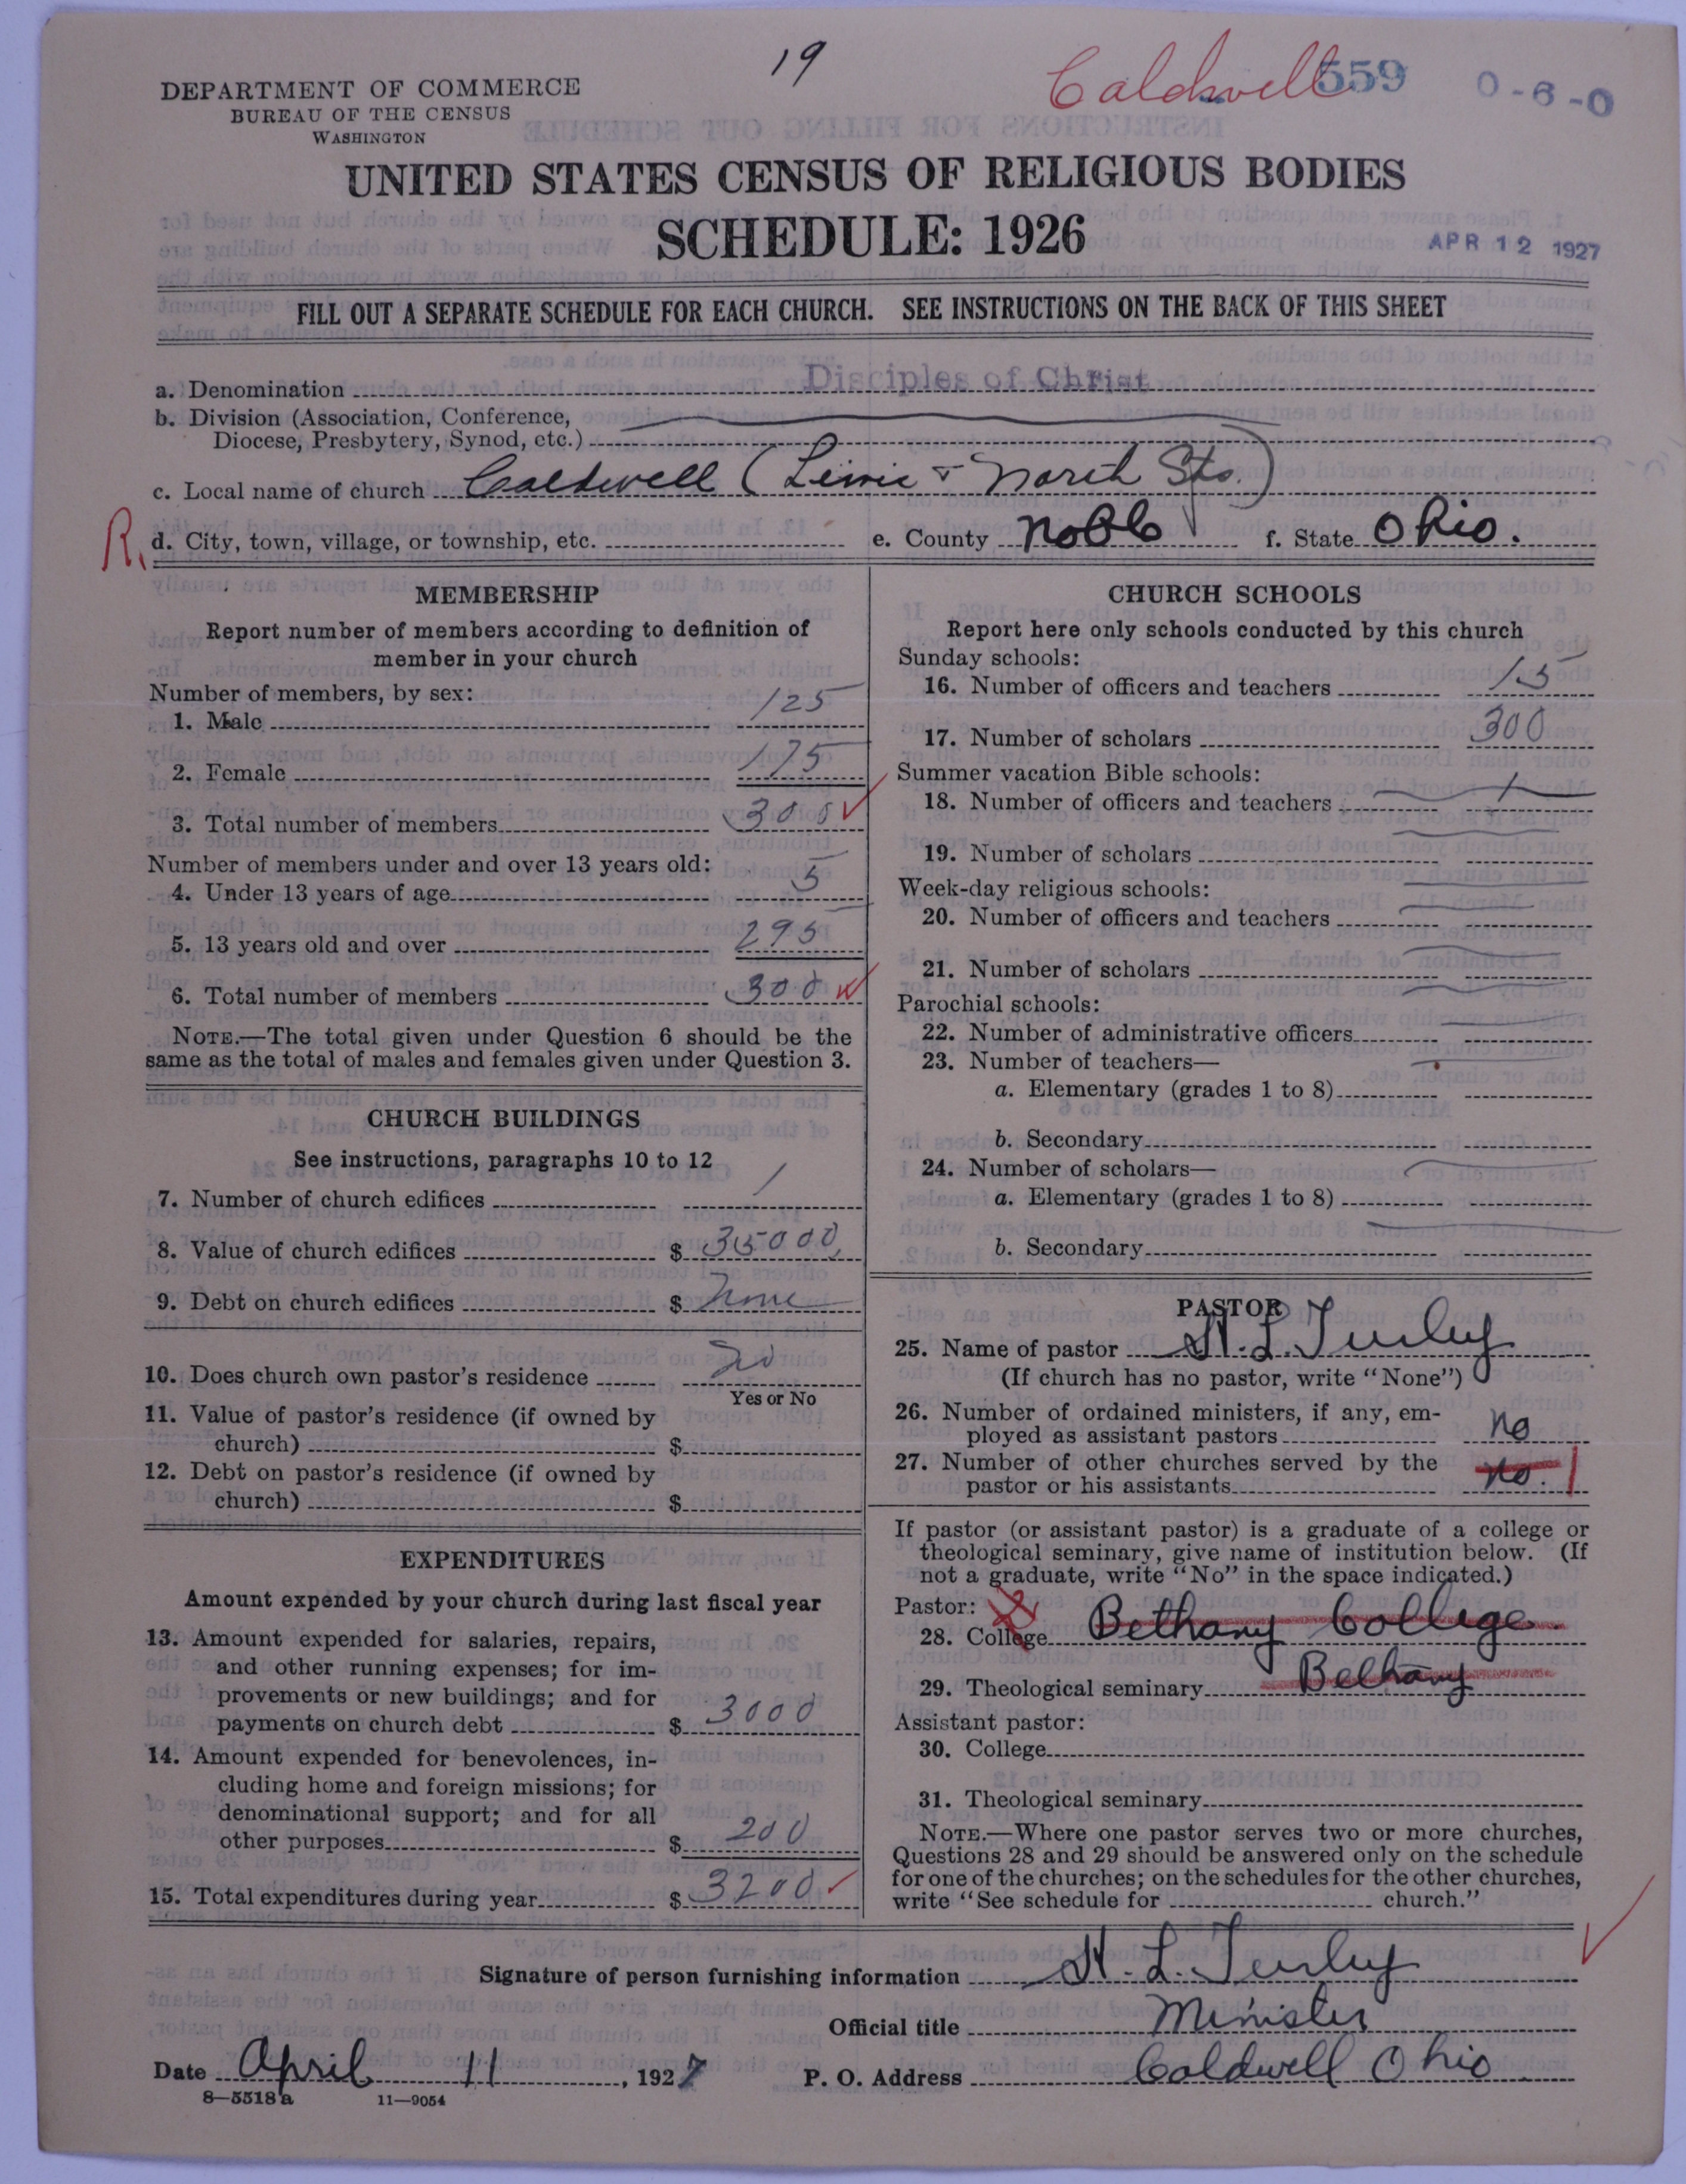 19
Caldwell 559 0-6-0
DEPARTMENT OF COMMERCE
BUREAU OF THE CENSUS
WASHINGTON
UNITED STATES CENSUS OF RELIGIOUS BODIES
SCHEDULE: 1926
APR 12 1927
FILL OUT A SEPARATE SCHEDULE FOR EACH CHURCH. SEE INSTRUCTIONS ON THE BACK OF THIS SHEET
a. Denomination Disciples of Christ
b. Division (Association, Conference,
Diocese, Presbytery, Synod, etc.)
c. Local name of church Caldwell ( & North Sts.)
R. d. City, town, village, or township, etc. e. County Noble f. State Ohio.
MEMBERSHIP
Report number of members according to definition of
member in your church
Number of members, by sex:
1. Male 125
2. Female 175
3. Total number of members 300
Number of members under and over 13 years old:
4. Under 13 years of age 5
5. 13 years old and over 295
6. Total number of members 300
NOTE.—The total given under Question 6 should be the
same as the total of males and females given under Question 3.
CHURCH BUILDINGS
See instructions, paragraphs 10 to 12
7. Number of church edifices 1
8. Value of church edifices $ 35000
9. Debt on church edifices $ none
10. Does church own pastor's residence no
Yes or No
11. Value of pastor's residence (if owned by
church) $
12. Debt on pastor's residence (if owned by
church) $
EXPENDITURES
Amount expended by your church during last fiscal year
13. Amount expended for salaries, repairs,
and other running expenses; for im-
provements or new buildings; and for
payments on church debt $ 3000
14. Amount expended for benevolences, in-
cluding home and foreign missions; for
denominational support; and for all
other purposes $ 200
15. Total expenditures during year $ 3200
CHURCH SCHOOLS
Report here only schools conducted by this church
Sunday schools:
16. Number of officers and teachers 15
17. Number of scholars 300
Summer vacation Bible schools:
18. Number of officers and teachers
19. Number of scholars
Week-day religious schools:
20. Number of officers and teachers
21. Number of scholars
Parochial schools:
22. Number of administrative officers
23. Number of teachers—
a. Elementary (grades 1 to 8)
b. Secondary
24. Number of scholars—
a. Elementary (grades 1 to 8)
b. Secondary
PASTOR
25. Name of pastor H. L. Turley
(If church has no pastor, write "None")
26. Number of ordained ministers, if any, em-
ployed as assistant pastors No
27. Number of other churches served by the
pastor or his assistants No. 1
If pastor (or assistant pastor) is a graduate of a college or
theological seminary, give name of institution below. (If
not a graduate, write "No" in the space indicated.)
Pastor:
28. College Bethany College
29. Theological seminary Bethany
Assistant pastor:
30. College
31. Theological seminary
NOTE.—Where one pastor serves two or more churches,
Questions 28 and 29 should be answered only on the schedule
for one of the churches; on the schedules for the other churches,
write "See schedule for church."
Signature of person furnishing information H. L. Turley
Official title Minister
Date April 11, 1927 P. O. Address Caldwell Ohio
8—5518 a 11—9054